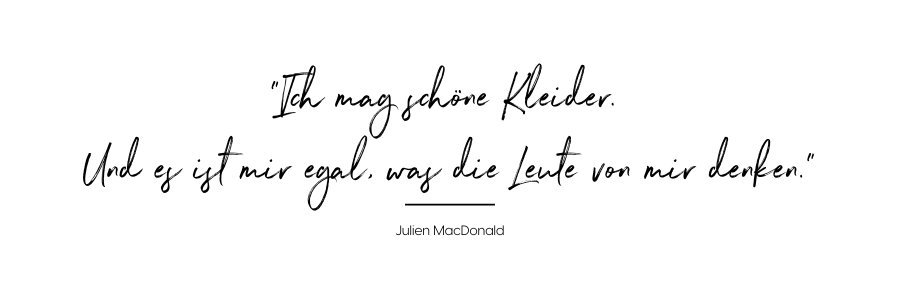 "Ich mag schöne Kleider.
Und es ist mir egal, was die Leute von mir denken."
Julien MacDonald